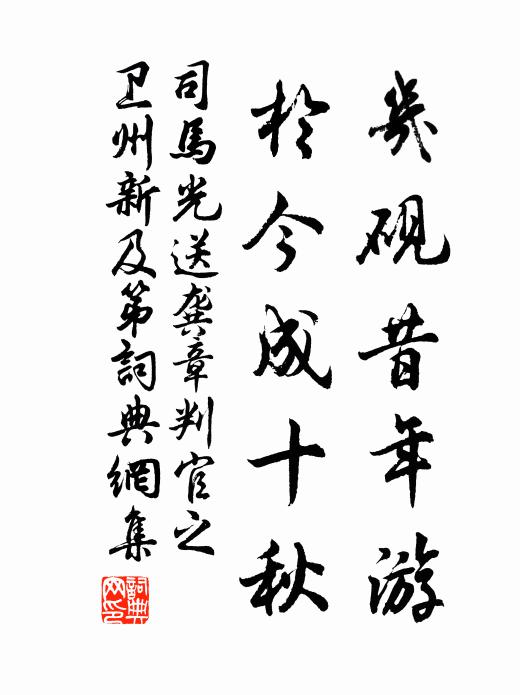 几砚昔年游
於今成十秋
司馬光送龔章判官之
卫州新及第詞典網集
詞典网印